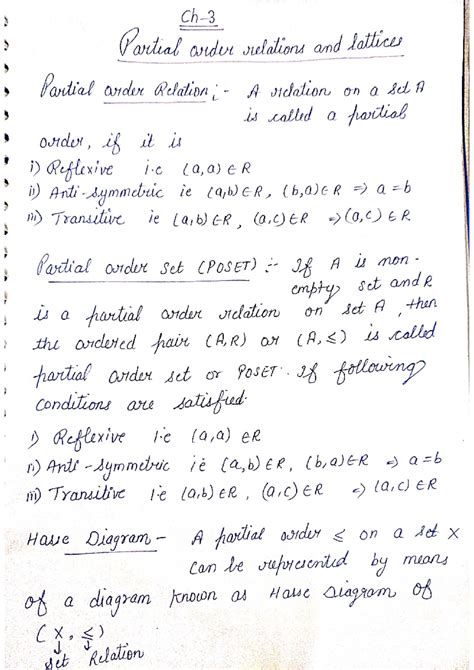 Ch-3
Partial order relations and lattices
Partial order Relation ; - A relation on a set A
is called a partial
order, if it is
i) Reflexive i.e (a,a) ∈ R
ii) Anti-symmetric ie (a,b) ∈ R, (b,a) ∈ R ⇒ a = b
iii) Transitive ie (a,b) ∈ R, (a,c) ∈ R ⇒ (a,c) ∈ R
Partial order set (POSET) :- If A is non-
empty set and R
is a partial order relation on set A, then
the ordered pair (A,R) or (A,≤) is called
partial order set or POSET. If following
conditions are satisfied.
i) Reflexive i.e (a,a) ∈ R
ii) Anti-symmetric ie (a,b) ∈ R, (b,a) ∈ R ⇒ a = b
iii) Transitive i.e (a,b) ∈ R, (a,c) ∈ R ⇒ (a,c) ∈ R
Hasse Diagram - A partial order ≤ on a set X
can be represented by means
of a diagram known as Hasse Diagram of
(X, ≤)
↓ ↓
set Relation